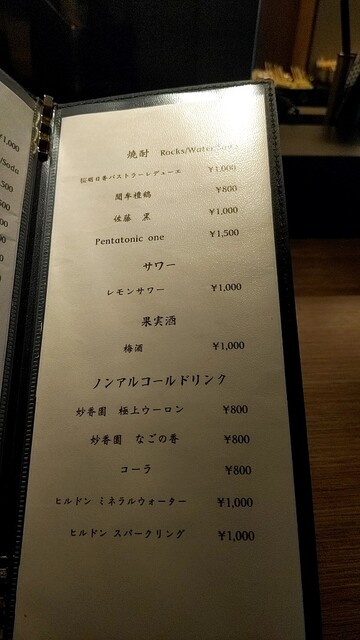 焼酎 Rocks/Water/Soda
¥1,000
¥800
佐藤 黒 ¥1,000
Pentatonic one ¥1,500
サワー
レモンサワー ¥1,000
果実酒
梅酒 ¥1,000
ノンアルコールドリンク
妙香園 極上ウーロン ¥800
妙香園 なごの香 ¥800
コーラ ¥800
ヒルドン ミネラルウォーター ¥1,000
ヒルドン スパークリング ¥1,000